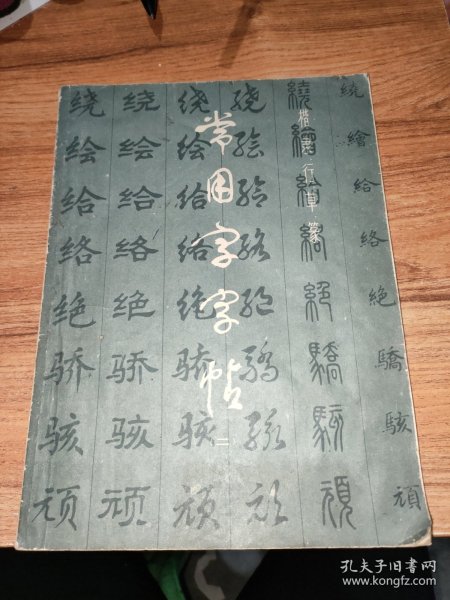 常用字字帖
二
楷隶行草篆
绕绘给络绝骄骇顽
绕绘给络绝骄骇顽
绕绘给络绝骄骇顽
绕绘给络绝骄骇顽
繞繪給絡絕驕駭頑
繞繪給絡絶驕駭頑
孔夫子旧书网
www.kongfz.com